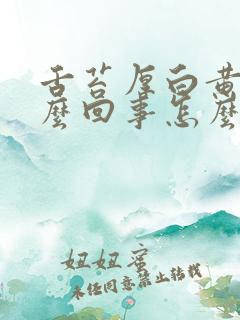 舌苔厚白黄
麼回事怎麼
妞妞蜜
未经同意禁止转载